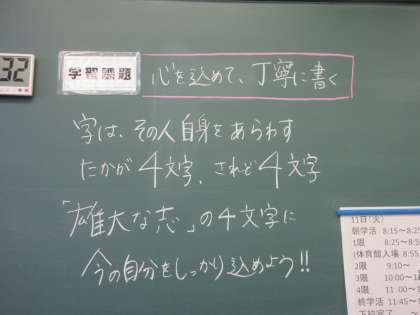 32
学習課題 心を込めて、丁寧に書く
字は、その人自身をあらわす
たかが4文字、されど4文字
「雄大な志」の4文字に
今の自分をしっかり込めよう!!
11日(火)
朝学活 8:15～8:25
1限 8:25～8:5
(体育館入場 8:55
2限 9:10～
3限 10:00～1
4限 11:00～1
終学活 11:45～1
下校完了